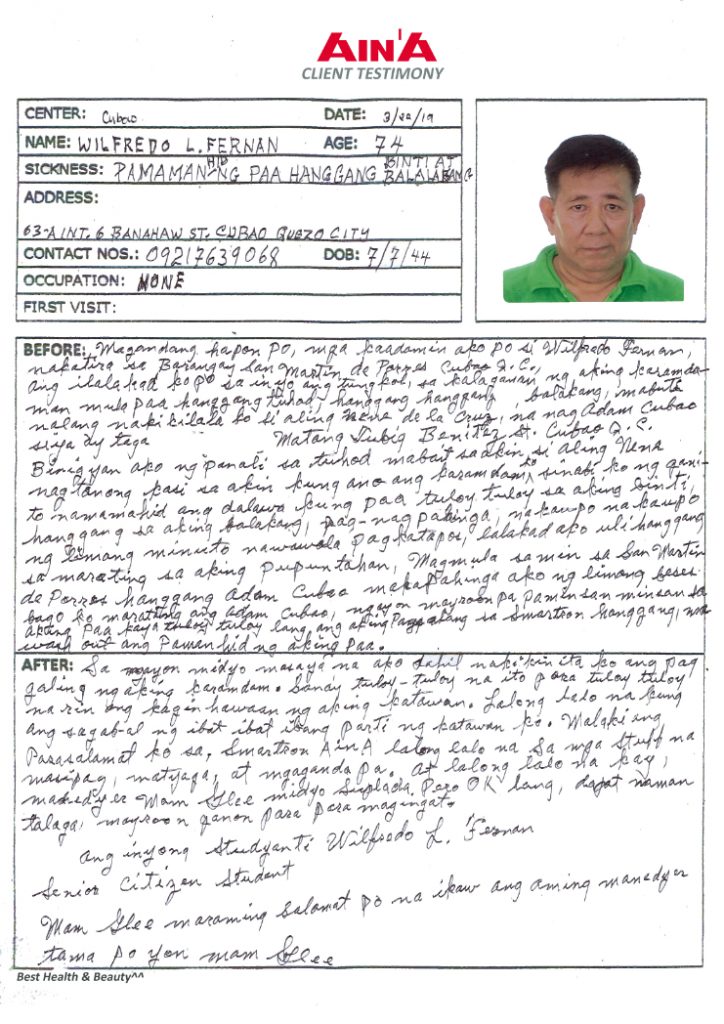 AIN'A
CLIENT TESTIMONY
CENTER: Cubao DATE: 3/22/19
NAME: WILFREDO L. FERNAN AGE: 74
SICKNESS: PAMAMANHID NG PAA HANGGANG BINTI AT BALAKANG
ADDRESS:
63-A INT. 6 BANAHAW ST. CUBAO QUEZO CITY
CONTACT NOS.: 09217639068 DOB: 7/7/44
OCCUPATION: NONE
FIRST VISIT:
BEFORE: Magandang hapon po, mga kaadamin ako po si Wilfredo Fernan,
nakatira sa Barangay San Martin de Porres Cubao Q.C.,
ang ilalahad ko po sa inyo ang tungkol, sa kalagayan ng aking karamda-
man mula paa hanggang tuhod, hanggang hanggang balakang, mabuti
nalang nakikilala ko si aling Nena de la Cruz, na nag Adam Cubao
siya ay taga Matang Tubig Benitez St. Cubao Q.C.
Binigyan ako ng panali sa tuhod mabait saakin si aling Nena
nagtanong kasi sa akin kung ano ang karamdam, sinabi ko ng gani-
to namamahid ang dalawa kung paa tuloy tuloy sa aking binti,
hanggang sa aking balakang, pag-nagpahinga, nakaupo nakaupo
ng limang minuto nawawala pagkatapos, lalakad ako uli hanggang
sa marating sa aking pupuntahan, Magmula samin sa San Martin
de Porres hanggang Adam Cubao makapahinga ako ng limang beses
bago ko marating ang Adam Cubao, ngayon mayroon pa paminsan minsan sa
aking Paa kaya tuloy tuloy lang, ang aking sa Smartron hanggang, ma
wash out ang Pamanhid ng aking Paa.
AFTER: Sa ngayon midyo masaya na ako dahil nakikinita ko ang pag
galing ng aking karamdam. Sanay tuloy-tuloy na ito para tuloy tuloy
na rin ang kaginhawaan ng aking katawan. Lalong lalo na kung
ang sagabal ng ibat ibat ibang parti ng katawan ko. Malaki ang
Pasasalamat ko sa, Smartron AinA lalong lalo na Sa mga Stuff na
masipag, matyaga, at mgaganda pa. At lalong lalo na kay,
manedyer Mam Glee midyo Suplada, Pero OK lang, dapat naman
talaga, mayroon ganon para para magingat.
ang inyong Studyanti Wilfredo L. Fernan
Senior Citizen Student
Mam Glee maraming Salamat po na ikaw ang aming manedyer
tama po yon mam Glee
Best Health & Beauty^^